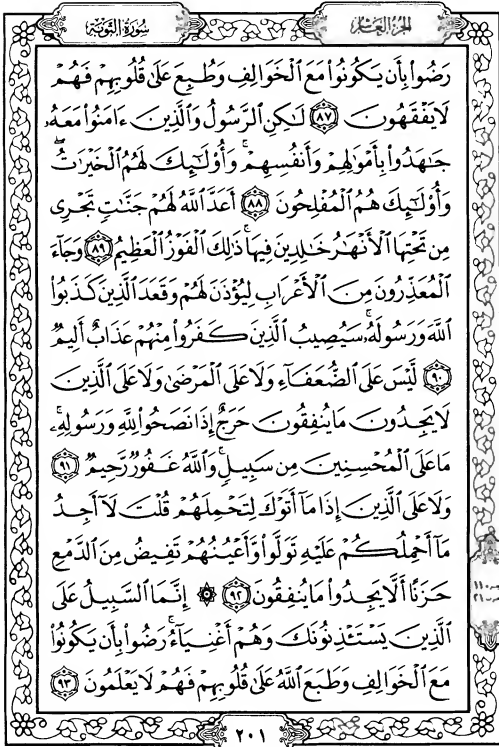 سُورَةُ التَّوْبَةِ
الجُزْءُ العَاشِرُ
رَضُوا۟ بِأَن يَكُونُوا۟ مَعَ ٱلْخَوَالِفِ وَطُبِعَ عَلَىٰ قُلُوبِهِمْ فَهُمْ
لَا يَفْقَهُونَ ﴿٨٧﴾ لَٰكِنِ ٱلرَّسُولُ وَٱلَّذِينَ ءَامَنُوا۟ مَعَهُۥ
جَٰهَدُوا۟ بِأَمْوَٰلِهِمْ وَأَنفُسِهِمْ ۚ وَأُو۟لَٰٓئِكَ لَهُمُ ٱلْخَيْرَٰتُ ۖ
وَأُو۟لَٰٓئِكَ هُمُ ٱلْمُفْلِحُونَ ﴿٨٨﴾ أَعَدَّ ٱللَّهُ لَهُمْ جَنَّٰتٍ تَجْرِى
مِن تَحْتِهَا ٱلْأَنْهَٰرُ خَٰلِدِينَ فِيهَا ۚ ذَٰلِكَ ٱلْفَوْزُ ٱلْعَظِيمُ ﴿٨٩﴾ وَجَآءَ
ٱلْمُعَذِّرُونَ مِنَ ٱلْأَعْرَابِ لِيُؤْذَنَ لَهُمْ وَقَعَدَ ٱلَّذِينَ كَذَبُوا۟
ٱللَّهَ وَرَسُولَهُۥ ۚ سَيُصِيبُ ٱلَّذِينَ كَفَرُوا۟ مِنْهُمْ عَذَابٌ أَلِيمٌ
﴿٩٠﴾ لَّيْسَ عَلَى ٱلضُّعَفَآءِ وَلَا عَلَى ٱلْمَرْضَىٰ وَلَا عَلَى ٱلَّذِينَ
لَا يَجِدُونَ مَا يُنفِقُونَ حَرَجٌ إِذَا نَصَحُوا۟ لِلَّهِ وَرَسُولِهِۦ ۚ
مَا عَلَى ٱلْمُحْسِنِينَ مِن سَبِيلٍ ۚ وَٱللَّهُ غَفُورٌ رَّحِيمٌ ﴿٩١﴾
وَلَا عَلَى ٱلَّذِينَ إِذَا مَآ أَتَوْكَ لِتَحْمِلَهُمْ قُلْتَ لَآ أَجِدُ
مَآ أَحْمِلُكُمْ عَلَيْهِ تَوَلَّوا۟ وَّأَعْيُنُهُمْ تَفِيضُ مِنَ ٱلدَّمْعِ
حَزَنًا أَلَّا يَجِدُوا۟ مَا يُنفِقُونَ ﴿٩٢﴾ ۞ إِنَّمَا ٱلسَّبِيلُ عَلَى
ٱلَّذِينَ يَسْتَـْٔذِنُونَكَ وَهُمْ أَغْنِيَآءُ ۚ رَضُوا۟ بِأَن يَكُونُوا۟
مَعَ ٱلْخَوَالِفِ وَطَبَعَ ٱللَّهُ عَلَىٰ قُلُوبِهِمْ فَهُمْ لَا يَعْلَمُونَ ﴿٩٣﴾
٢٠١